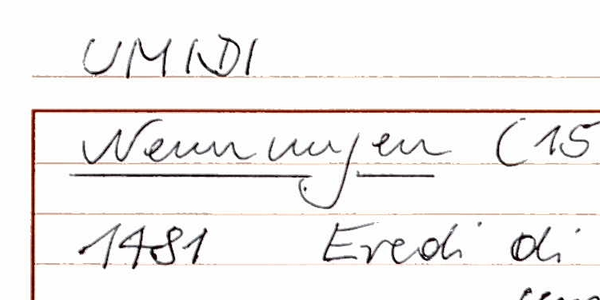 UMIDI
Nennungen (15
1481 Eredi di